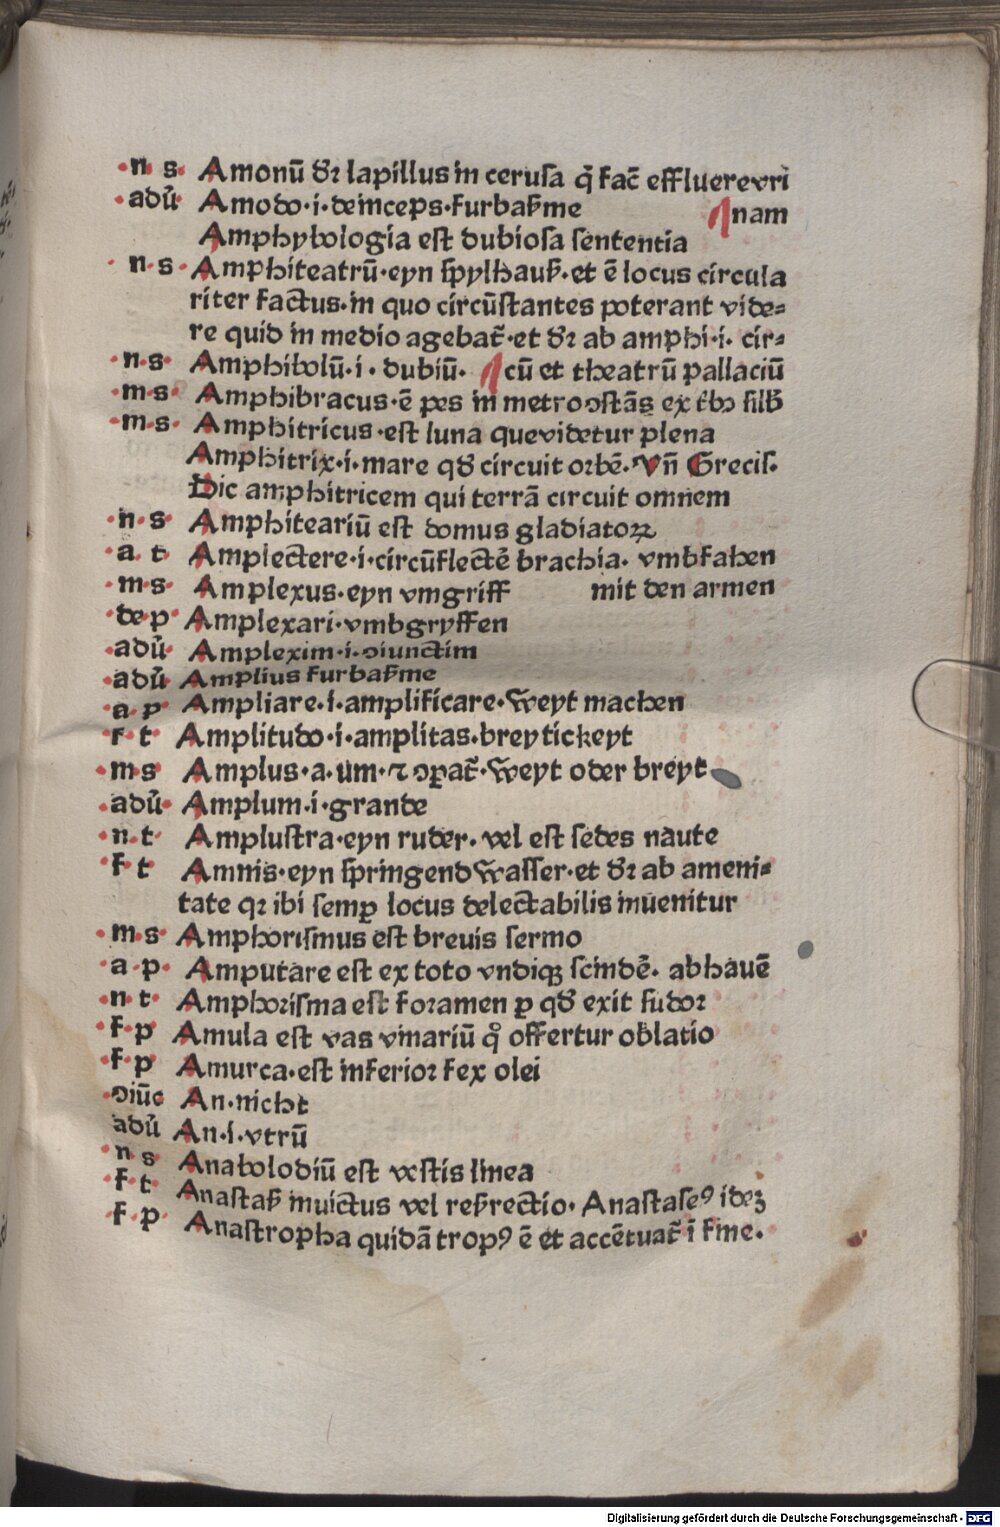 ·n s· Amonū dr̄ lapillus in cerusa q̄ fac̄ effluere vri
·adū· Amodo·i·deinceps·furbaß me ⁋nam
Amphybologia est dubiosa sententia
·n·s· Amphiteatrū·eyn spylhauß·et ē locus circula
riter factus·in quo circūstantes poterant vide⸗
re quid in medio agebat̄·et dr̄ ab amphi·i· cir⸗
·n·s· Amphibolū·i·dubiū· ⁋cū et theatrū pallaciū
·m·s· Amphibracus·ē pes in metro ↄstās ex tb̄ↄ silb̄
·m·s· Amphitricus·est luna que videtur plena
Amphitrix·i·mare qd̄ circuit orbē·Vn̄ Grecis·
Dic amphitricem qui terrā circuit omnem
·n·s· Amphiteariū est domus gladiatoꝝ
·a·t· Amplectere·i·circūflectē brachia· vmbfahen
·m·s· Amplexus·eyn vmgriff mit den armen
·de p· Amplexari·vmbgryffen
·adū· Amplexim·i·ↄiunctim
·adū Amplius furbaß me
·a·p Ampliare·i·amplificare·weyt machen
·f·t· Amplitudo·i·amplitas·breytickeyt
·m·s Amplus·a·um·⁊ ↄꝑat̄·weyt oder breyt
·adū· Amplum·i·grande
·n·t· Amplustra·eyn ruder·vel est sedes naute
·f t Amnis·eyn springend wasser·et dr̄ ab ameni⸗
tate qꝛ ibi semꝑ locus delectabilis inuenitur
·m·s· Amphorismus est breuis sermo
·a·p· Amputare est ex toto vndiqꝫ scindē· abhauē
·n·t· Amphorisma est foramen ꝑ qd̄ exit sudor
·f·p Amula est vas vinariū q° offertur oblatio
·f·p Amurca·est inferior fex olei
·ↄiūc An·nicht
adū An·i·vtrū
·n s Anabolodiū est vestis linea
·f·t· Anastaß inuictus vel reßrectio·Anastaseꝰ ideꝫ
·f·p· Anastropha quidā tropꝰ ē et accētuat̄ ī fine·
Digitalisierung gefördert durch die Deutsche Forschungsgemeinschaft - DFG